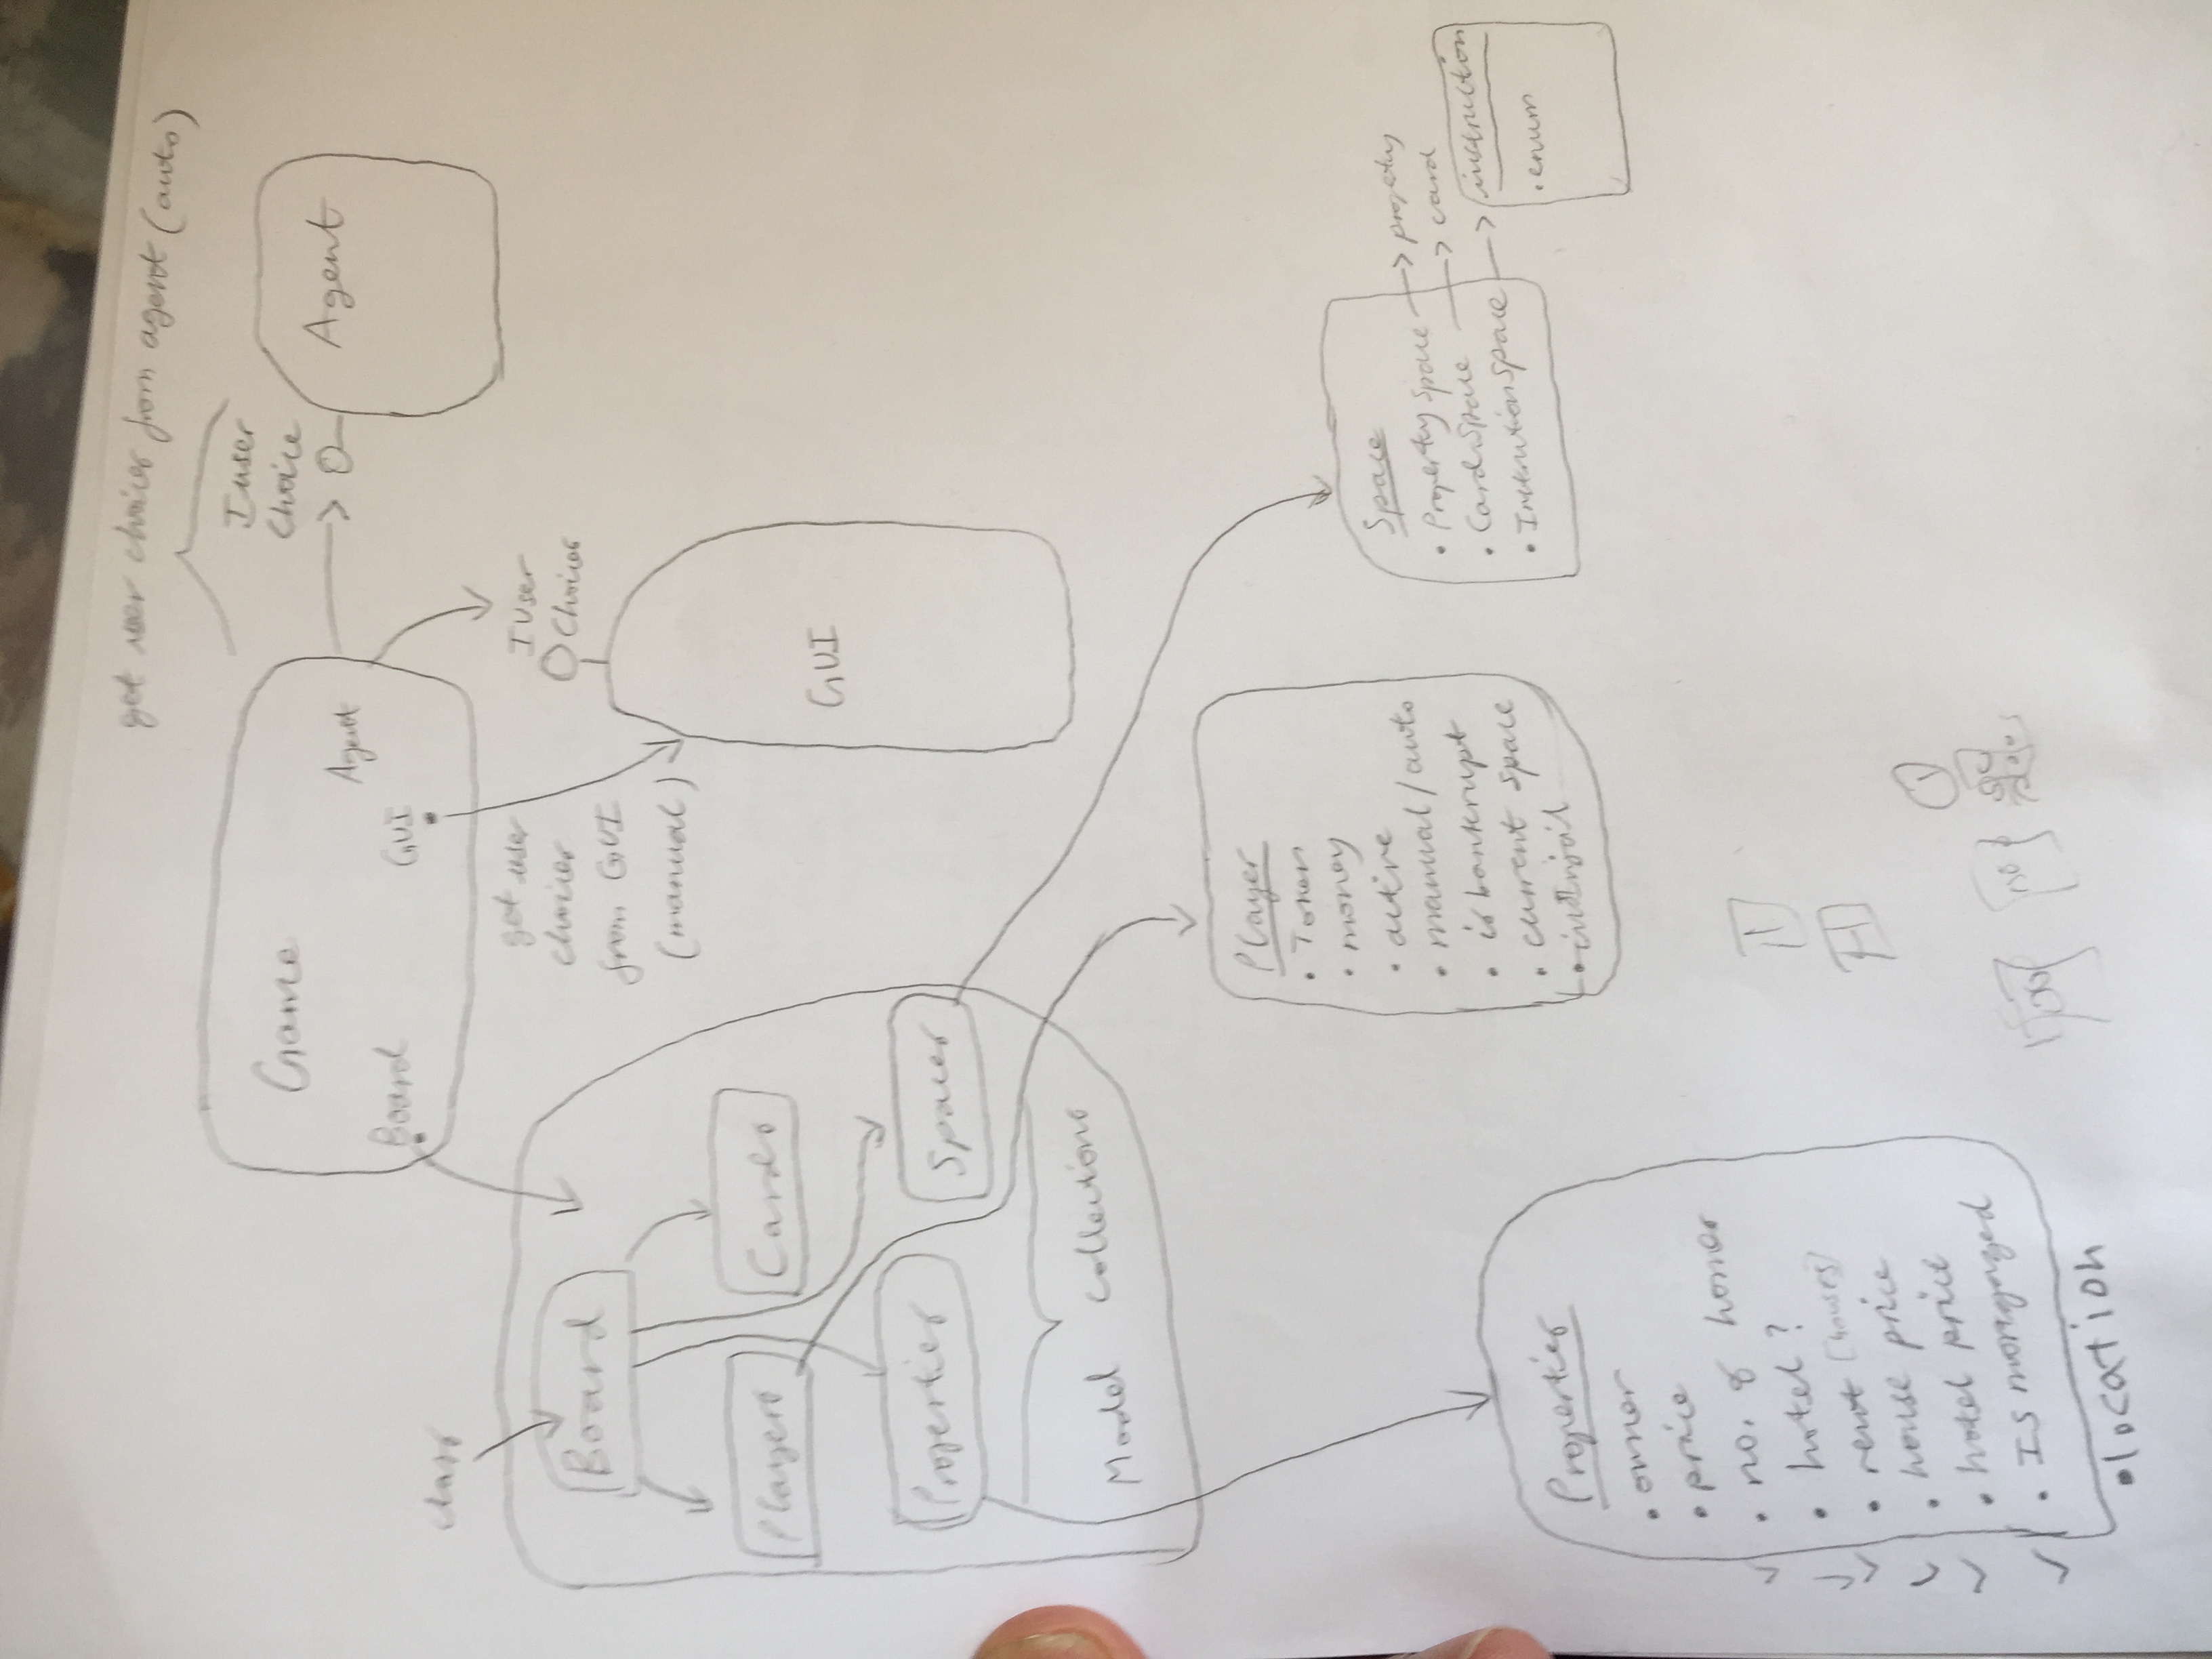 get user choices from agent (auto)
Iuser
Choice
Game
Agent
Agent
Board
GUI
class
get user
choices
from GUI
(manual)
IUser
Choices
Board
Players
Cards
GUI
Properties
Spaces
Model collections
Player
• Token
• money
• active
• manual/auto
• is bankrupt
• current space
Space
• Property Space
property
• Card Space
card
• InstrutionSpace
instruction
• enum
Properties
• owner
• price
• no. of homes
• hotel?
• rent [houses]
• house price
• hotel price
• Is moregazed
• location